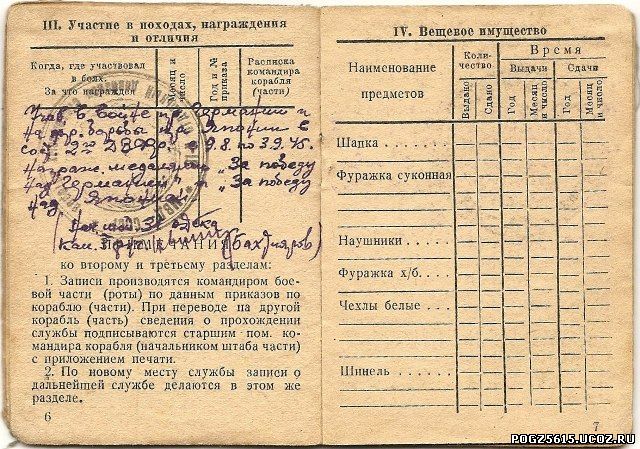 III. Участие в походах, награждения
и отличия
Когда, где участвовал
в боях.
За что награжден
Месяц и
число
Год и №
приказа
Расписка
командира
корабля
(части)
Уч. в войне пр. Германии и
на борьбы пр. Японии с
9.8 по 3.9.45.
Награж. медалями „За победу
над Германией" и „За победу
над Японией"
ПРИМЕЧАНИЯ
ко второму и третьему разделам:
1. Записи производятся командиром бое-
вой части (роты) по данным приказов по
кораблю (части). При переводе на другой
корабль (часть) сведения о прохождении
службы подписываются старшим пом. ко-
мандира корабля (начальником штаба части)
с приложением печати.
2. По новому месту службы записи о
дальнейшей службе делаются в этом же
разделе.
6
IV. Вещевое имущество
Наименование
предметов
Коли-
чество
Время
Выдачи
Сдачи
Выдано
Сдано
Год
Месяц
и число
Год
Месяц
и число
Шапка
Фуражка суконная
Наушники
Фуражка х/б.
Чехлы белые
Шинель
7
POGZ5615.UCOZ.RU